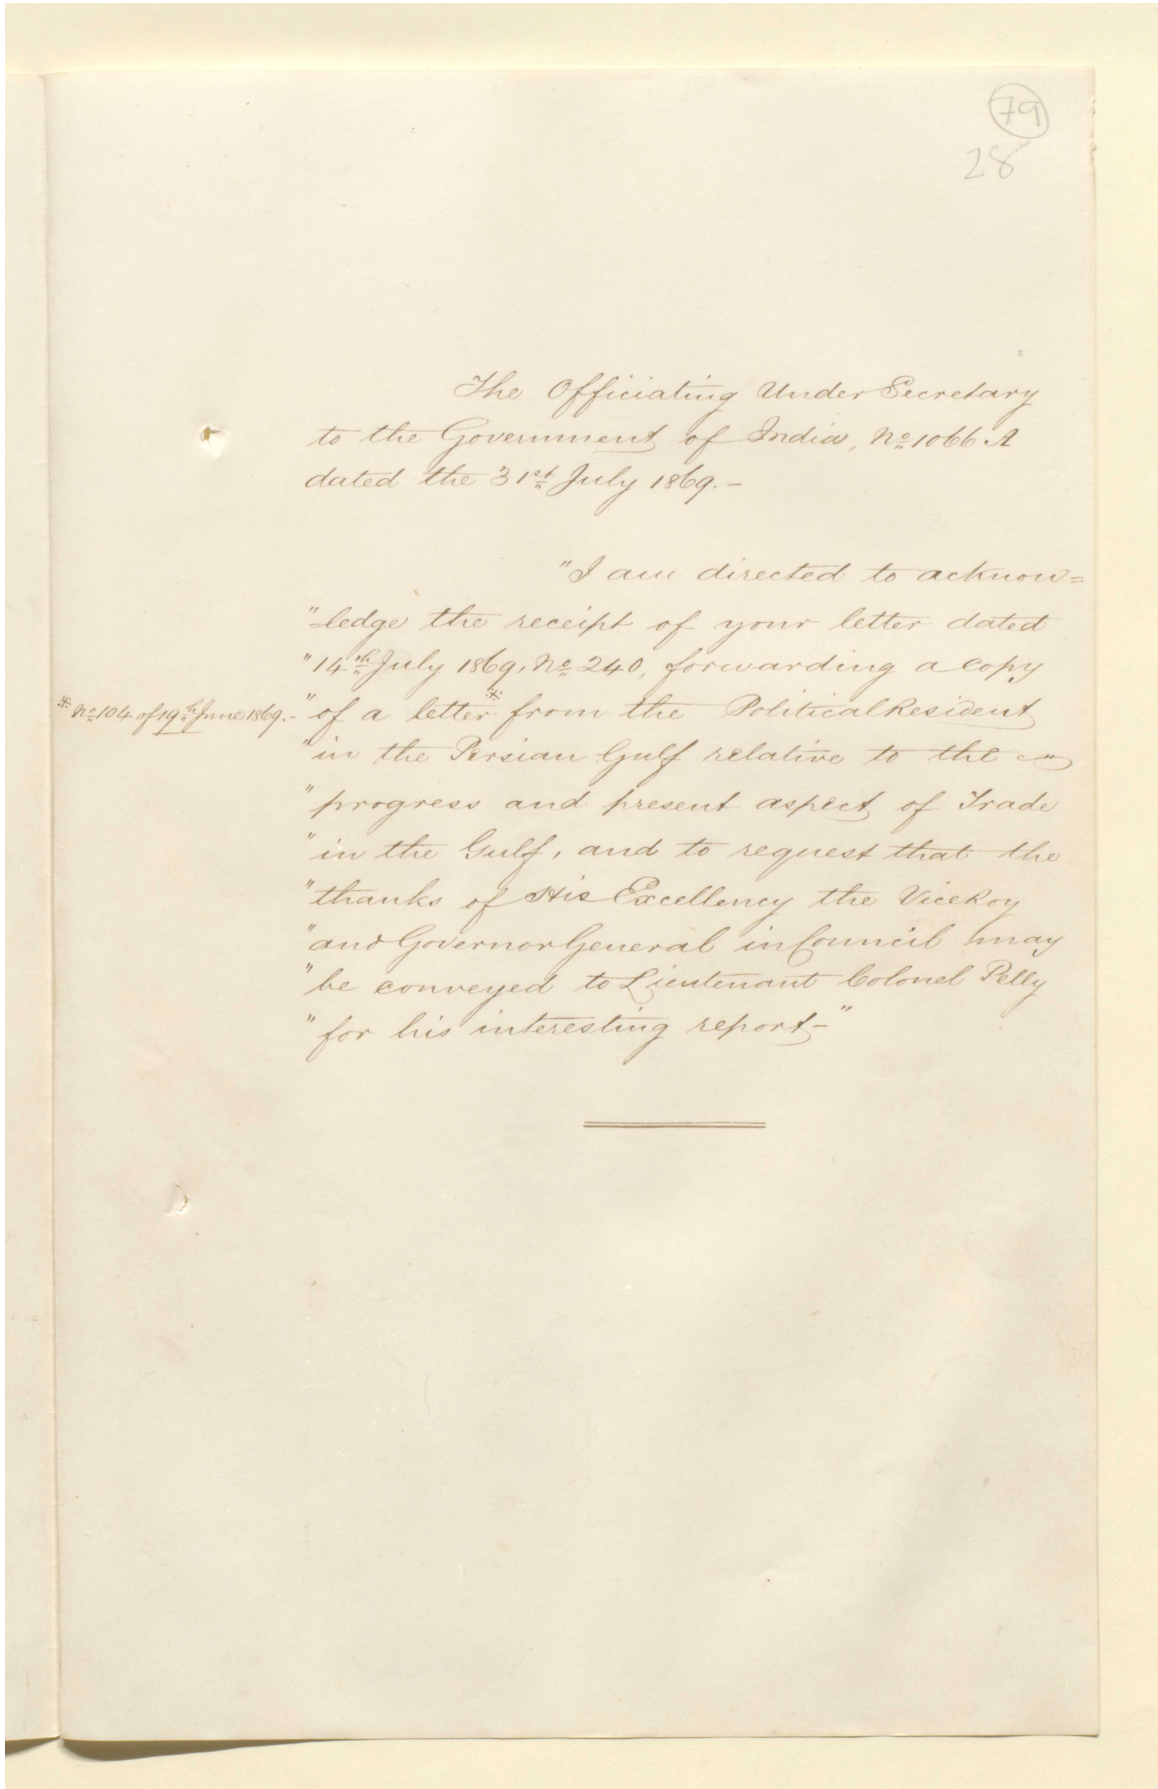 79
28
The Officiating Under Secretary
to the Government of India, No 1066 A
dated the 31st July 1869.-
"I am directed to acknow=
"ledge the receipt of your letter dated
"14th July 1869, No 240, forwarding a copy
* No 104 of 19th June 1869.-
"of a letter * from the Political Resident
"in the Persian Gulf relative to the
"progress and present aspect of Trade
"in the Gulf, and to request that the
"thanks of His Excellency the Viceroy
"and Governor General in Council may
"be conveyed to Lieutenant Colonel Pelly
"for his interesting report-"